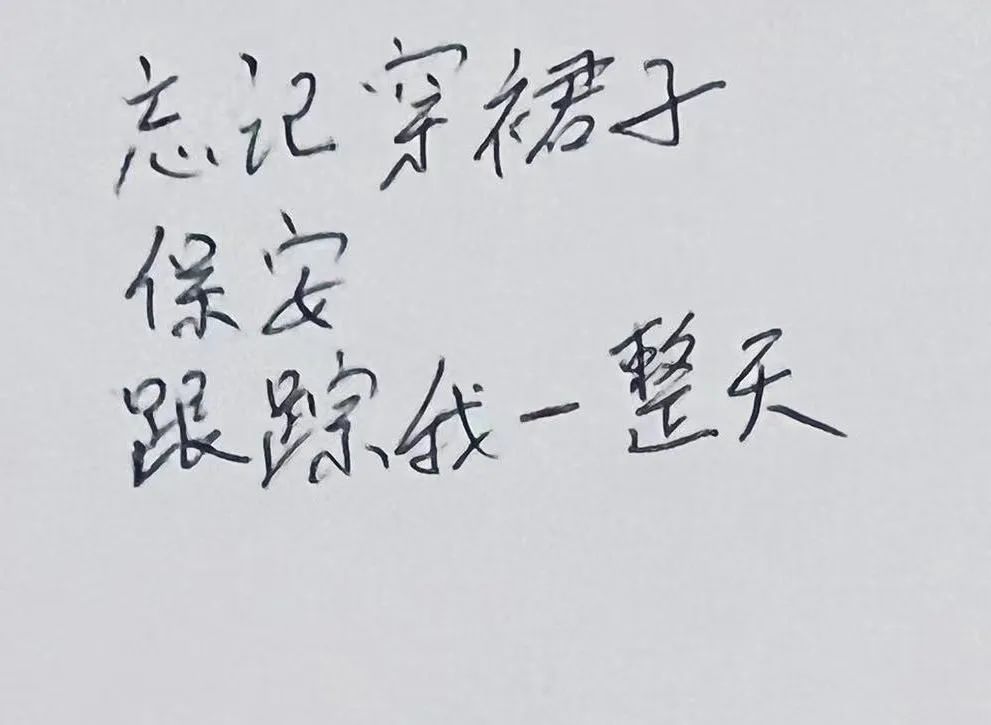 忘记穿裙子
保安
跟踪我一整天